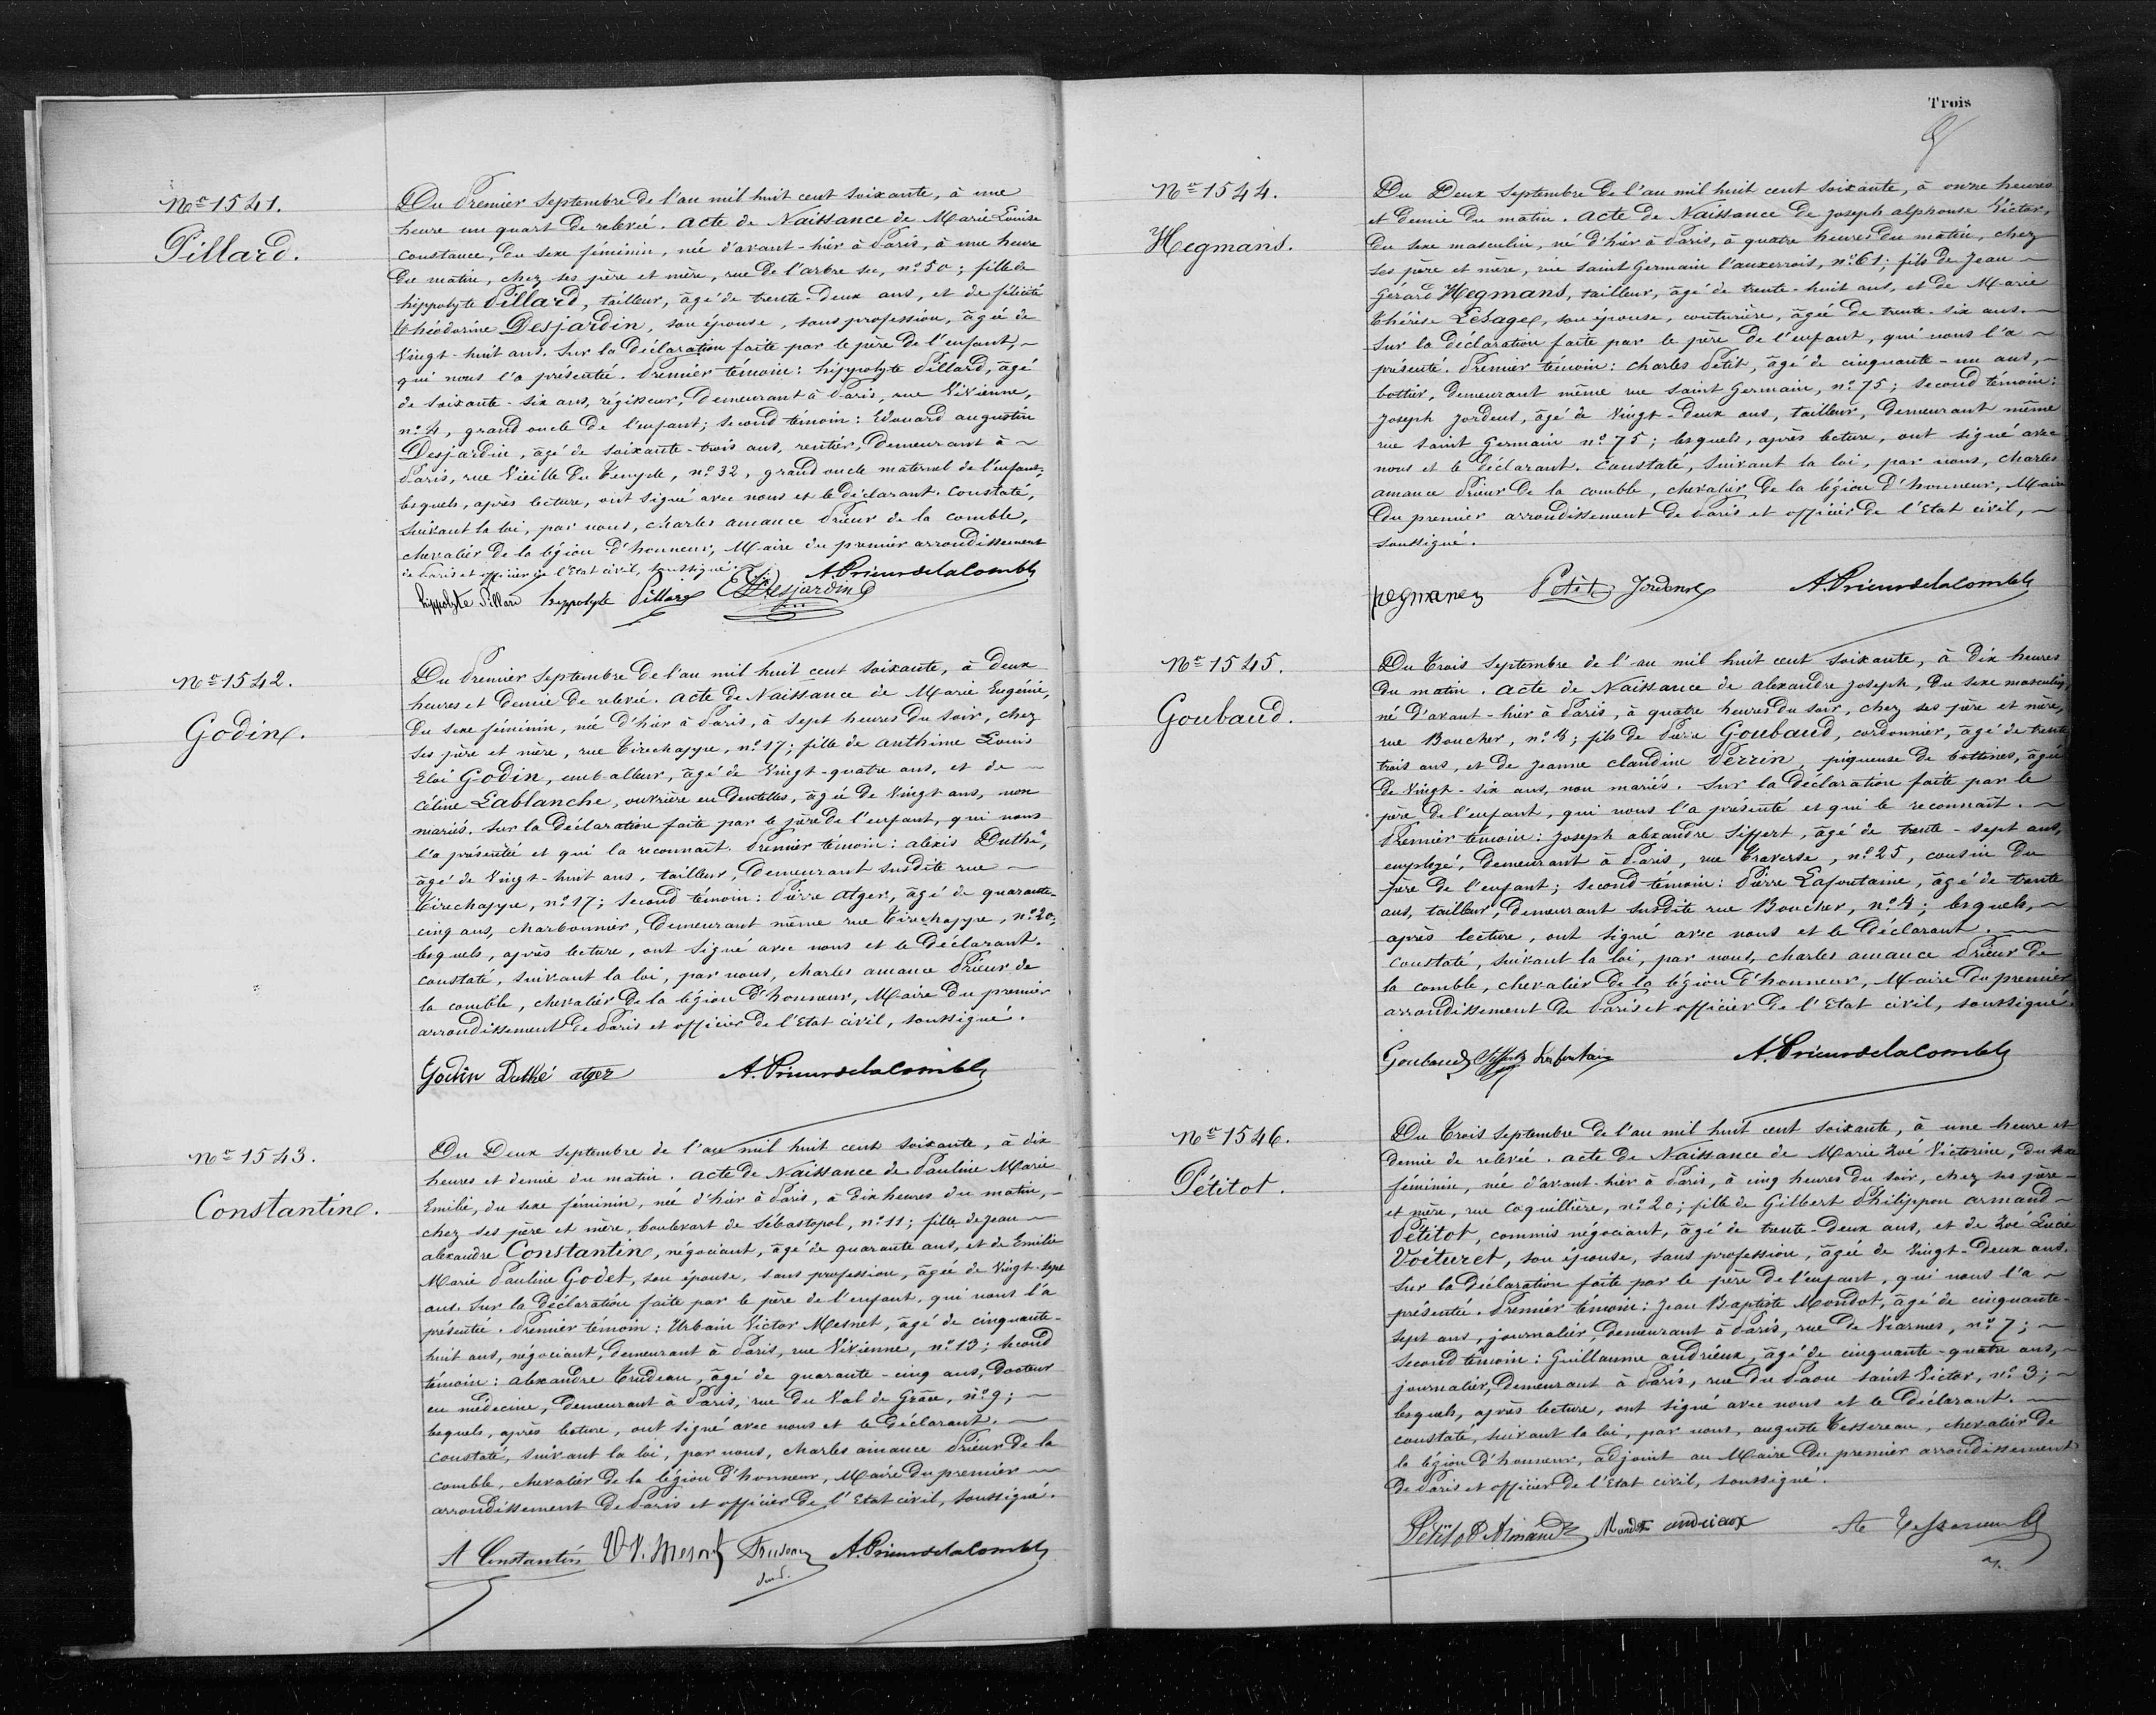 Nos 1541.
Pillard.
Du Premier Septembre de l'an mil huit cent soixante, à une
heure un quart de relevée. acte de Naissance de Marie Louise
constance, du sexe féminin, née d'avant-hier à Paris, à une heure
du matin, chez ses père et mère, rue de l'arbre sec, no 50; fille de
hippolyte Pillard, tailleur, âgé de trente-deux ans, et de félicité
théodorine Desjardin, son épouse, sans profession, âgée de
vingt-huit ans. Sur la déclaration faite par le père de l'enfant, ~
qui nous l'a présentée. Premier témoin: hippolyte Pillard, âgé
de soixante-six ans, régisseur, demeurant à Paris, rue Vivienne,
no 4, grand oncle de l'enfant; second témoin: Edouard augustin
Desjardin, âgé de soixante-trois ans, rentier, demeurant à ~
Paris, rue Vieille du Temple, no 32, grand oncle maternel de l'enfant;
lesquels, après lecture, ont signé avec nous et le déclarant. constaté,
suivant la loi, par nous, charles amance Prieur de la comble,
chevalier de la légion d'honneur, Maire du premier arrondissement
de Paris et officier de l'Etat civil, soussigné.
A. Prieur de la Comble
hippolyte Pillard hippolyte Pillard Desjardin
No 1542.
Godin.
Du Premier Septembre de l'an mil huit cent soixante, à deux
heures et demie de relevée. acte de Naissance de Marie Eugénie,
du sexe féminin, née d'hier à Paris, à sept heures du soir, chez
ses père et mère, rue Tirechappe, no 17; fille de anthime Louis
Eloi Godin, emballeur, âgé de vingt-quatre ans, et de ~
céline Lablanche, ouvrière en dentelles, âgée de vingt ans, non
mariés. Sur la déclaration faite par le père de l'enfant, qui nous
l'a présentée et qui la reconnaît. Premier témoin: alexis Duthé,
âgé de vingt-huit ans, tailleur, demeurant susdite rue ~
Tirechappe, no 17; second témoin: Pierre atger, âgé de quarante-
cinq ans, charbonnier, demeurant même rue Tirechappe, no 20;
lesquels, après lecture, ont signé avec nous et le déclarant.
constaté, suivant la loi, par nous, charles amance Prieur de
la comble, chevalier de la légion d'honneur, Maire du premier
arrondissement de Paris et officier de l'Etat civil, soussigné.
Godin Duthé atger A. Prieur de la Comble
No 1543.
Constantin.
Du Deux septembre de l'an mil huit cent soixante, à dix
heures et demie du matin. acte de Naissance de Pauline Marie
Emilie, du sexe féminin, née d'hier à Paris, à dix heures du matin, ~
chez ses père et mère, boulevart de Sébastopol, no 11; fille de jean ~
alexandre Constantin, négociant, âgé de quarante ans, et de Emilie
Marie Pauline Godet, son épouse, sans profession, âgée de vingt-sept
ans. Sur la déclaration faite par le père de l'enfant, qui nous l'a
présentée. Premier témoin: Urbain Victor Mesnet, âgé de cinquante-
huit ans, négociant, demeurant à Paris, rue Vivienne, no 13; second
témoin: alexandre Trudeau, âgé de quarante-cinq ans, Docteur
en médecine, demeurant à Paris, rue du Val de Grâce, no 9; ~
lesquels, après lecture, ont signé avec nous et le déclarant. ~
constaté, suivant la loi, par nous, charles amance Prieur de la
comble, chevalier de la légion d'honneur, Maire du premier ~
arrondissement de Paris et officier de l'Etat civil, soussigné.
A Constantin U V. Mesnet Trudeau A. Prieur de la Comble
Trois
No 1544.
Hegmans.
Du Deux Septembre de l'an mil huit cent soixante, à onze heures
et demie du matin. acte de Naissance de Joseph alphonse Victor,
du sexe masculin, né d'hier à Paris, à quatre heures du matin, chez
ses père et mère, rue saint germain l'auxerrois, no 61; fils de Jean ~
gérard Hegmans, tailleur, âgé de trente-huit ans, et de Marie
thérèse Lesage, son épouse, couturière, âgée de trente-six ans. ~
Sur la déclaration faite par le père de l'enfant, qui nous l'a ~
présenté. Premier témoin: charles Petit, âgé de cinquante-un ans, ~
bottier, demeurant même rue saint germain, no 75; second témoin:
joseph jordens, âgé de vingt-deux ans, tailleur, demeurant même
rue saint germain no 75; lesquels, après lecture, ont signé avec
nous et le déclarant. constaté, suivant la loi, par nous, charles
amance Prieur de la comble, chevalier de la légion d'honneur, Maire
du premier arrondissement de Paris et officier de l'Etat civil, ~
soussigné.
hegmans Petit Jordens A. Prieur de la Comble
No 1545.
Goubaud.
Du Trois Septembre de l'an mil huit cent soixante, à dix heures
du matin. acte de Naissance de alexandre joseph, du sexe masculin,
né d'avant-hier à Paris, à quatre heures du soir, chez ses père et mère,
rue Boucher, no 4; fils de Pierre Goubaud, cordonnier, âgé de trente
trois ans, et de jeanne claudine Perrin, piqueuse de bottines, âgée
de vingt-six ans, non mariés. Sur la déclaration faite par le
père de l'enfant, qui nous l'a présenté et qui le reconnaît. ~
Premier témoin: joseph alexandre Siffert, âgé de trente-sept ans,
employé, demeurant à Paris, rue Traverse, no 25, cousin du
père de l'enfant; second témoin: Pierre Lafontaine, âgé de trente
ans, tailleur, demeurant susdite rue Boucher, no 4; lesquels, ~
après lecture, ont signé avec nous et le déclarant. ~
constaté, suivant la loi, par nous, charles amance Prieur de
la comble, chevalier de la légion d'honneur, Maire du premier
arrondissement de Paris et officier de l'Etat civil, soussigné.
Goubaud Siffert Lafontaine A. Prieur de la Comble
No 1546.
Pétitot.
Du Trois Septembre de l'an mil huit cent soixante, à une heure et
demie de relevée. acte de Naissance de Marie Zoé Victorine, du sexe
féminin, née d'avant-hier à Paris, à cinq heures du soir, chez ses père ~
et mère, rue coquillière, no 20; fille de Gilbert Philippon armand ~
Pétitot, commis négociant, âgé de trente-deux ans, et de Zoé Lucie
Voituret, son épouse, sans profession, âgée de vingt-deux ans.
Sur la déclaration faite par le père de l'enfant, qui nous l'a ~
présentée. Premier témoin: Jean Baptiste Mondot, âgé de cinquante-
sept ans, journalier, demeurant à Paris, rue de Viarmes, no 7; ~
second témoin: Guillaume andrieux, âgé de cinquante-quatre ans, ~
journalier, demeurant à Paris, rue du Paon saint Victor, no 3; ~
lesquels, après lecture, ont signé avec nous et le déclarant. ~
constaté, suivant la loi, par nous, auguste Tessereau, chevalier de
la légion d'honneur, adjoint au Maire du premier arrondissement
de Paris et officier de l'Etat civil, soussigné.
Pétitot Armand Mondot andrieux A Tessereau